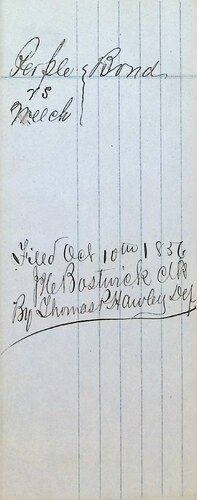 People } Bond
vs
Meech
Filed Oct 10th 1856
J H Bostwick Clk
By Thomas P Hawley Dep